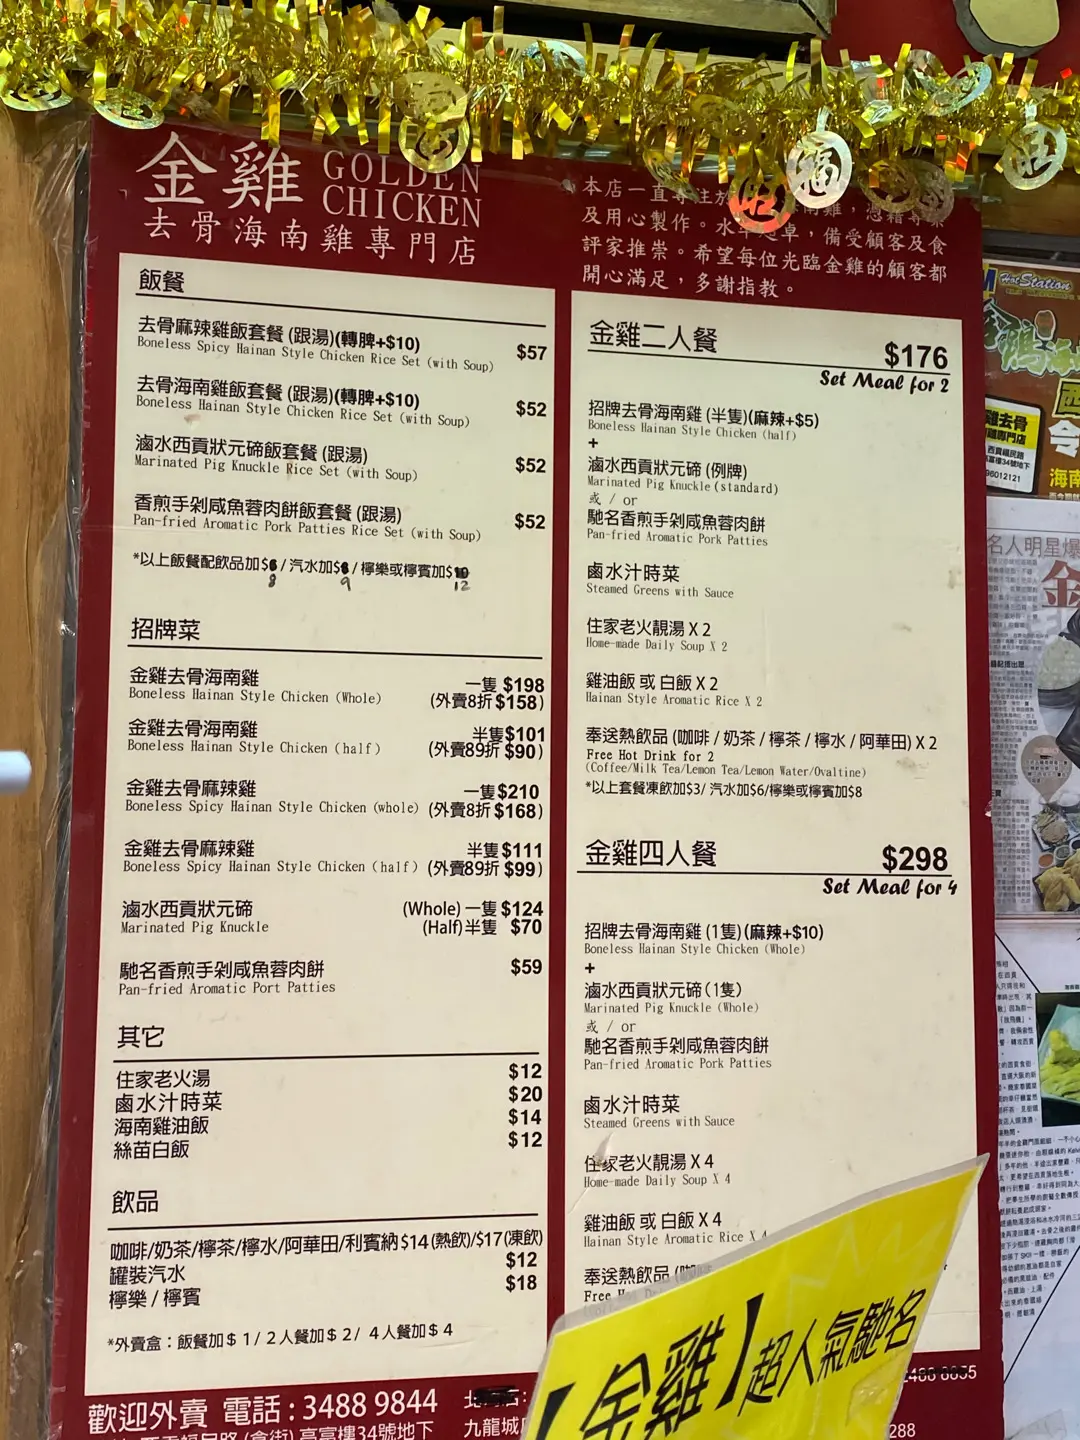 金雞
GOLDEN
CHICKEN
去骨海南雞專門店
本店一直專注於
南雞，憑藉專業
及用心製作。水
卓，備受顧客及食
評家推崇。希望每位光臨金雞的顧客都
開心滿足，多謝指教。
飯餐
去骨麻辣雞飯套餐 (跟湯)(轉脾+$10)
Boneless Spicy Hainan Style Chicken Rice Set (with Soup) $57
去骨海南雞飯套餐 (跟湯)(轉脾+$10)
Boneless Hainan Style Chicken Rice Set (with Soup) $52
滷水西貢狀元碲飯套餐 (跟湯)
Marinated Pig Knuckle Rice Set (with Soup) $52
香煎手剁咸魚蓉肉餅飯套餐 (跟湯)
Pan-fried Aromatic Pork Patties Rice Set (with Soup) $52
*以上飯餐配飲品加$8 / 汽水加$9 / 檸樂或檸賓加$12
招牌菜
金雞去骨海南雞 一隻 $198
Boneless Hainan Style Chicken (Whole) (外賣8折 $158)
金雞去骨海南雞 半隻 $101
Boneless Hainan Style Chicken (half) (外賣89折 $90)
金雞去骨麻辣雞 一隻 $210
Boneless Spicy Hainan Style Chicken (whole) (外賣8折 $168)
金雞去骨麻辣雞 半隻 $111
Boneless Spicy Hainan Style Chicken (half) (外賣89折 $99)
滷水西貢狀元碲 (Whole) 一隻 $124
Marinated Pig Knuckle (Half) 半隻 $70
馳名香煎手剁咸魚蓉肉餅 $59
Pan-fried Aromatic Port Patties
其它
住家老火湯 $12
鹵水汁時菜 $20
海南雞油飯 $14
絲苗白飯 $12
飲品
咖啡/奶茶/檸茶/檸水/阿華田/利賓納 $14 (熱飲)/$17(凍飲)
罐裝汽水 $12
檸樂 / 檸賓 $18
*外賣盒：飯餐加 $ 1 / 2 人餐加 $ 2 / 4 人餐加 $ 4
金雞二人餐 $176
Set Meal for 2
招牌去骨海南雞 (半隻)(麻辣+$5)
Boneless Hainan Style Chicken (half)
+
滷水西貢狀元碲 (例牌)
Marinated Pig Knuckle (standard)
或 / or
馳名香煎手剁咸魚蓉肉餅
Pan-fried Aromatic Pork Patties
鹵水汁時菜
Steamed Greens with Sauce
住家老火靚湯 X 2
Home-made Daily Soup X 2
雞油飯 或 白飯 X 2
Hainan Style Aromatic Rice X 2
奉送熱飲品 (咖啡 / 奶茶 / 檸茶 / 檸水 / 阿華田) X 2
Free Hot Drink for 2
(Coffee/Milk Tea/Lemon Tea/Lemon Water/Ovaltine)
*以上套餐凍飲加$3/ 汽水加$6/檸樂或檸賓加$8
金雞四人餐 $298
Set Meal for 4
招牌去骨海南雞 (1隻)(麻辣+$10)
Boneless Hainan Style Chicken (Whole)
+
滷水西貢狀元碲 (1隻)
Marinated Pig Knuckle (Whole)
或 / or
馳名香煎手剁咸魚蓉肉餅
Pan-fried Aromatic Pork Patties
鹵水汁時菜
Steamed Greens with Sauce
住家老火靚湯 X 4
Home-made Daily Soup X 4
雞油飯 或 白飯 X 4
Hainan Style Aromatic Rice X 4
奉送熱飲品
Free
【金雞】超人氣馳名
歡迎外賣 電話 : 3488 9844
高富樓34號地下
九龍城
288
福
旺
旺
Hot Station
雞去骨
專門店
96012121
名人明星
金